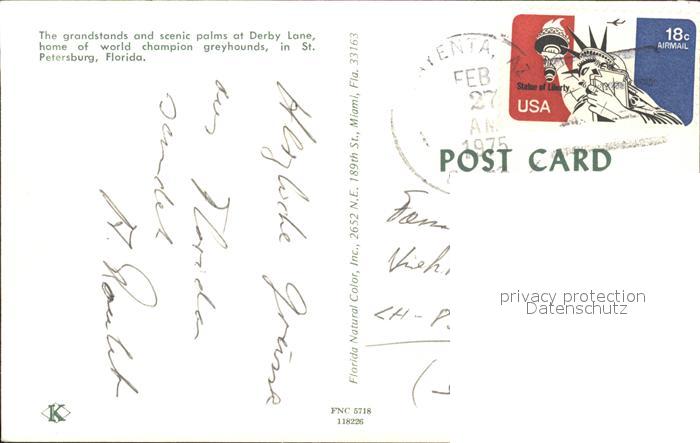 The grandstands and scenic palms at Derby Lane,
home of world champion greyhounds, in St.
Petersburg, Florida.
Herzliche Grüsse
aus Florida
sendet
Florida Natural Color, Inc., 2652 N.E. 189th St., Miami, Fla. 33163
K
FNC 5718
118226
FEB
27
AM
1975
18c
AIRMAIL
Statue of Liberty
USA
POST CARD
Fam
Vieh
CH-
privacy protection
Datenschutz